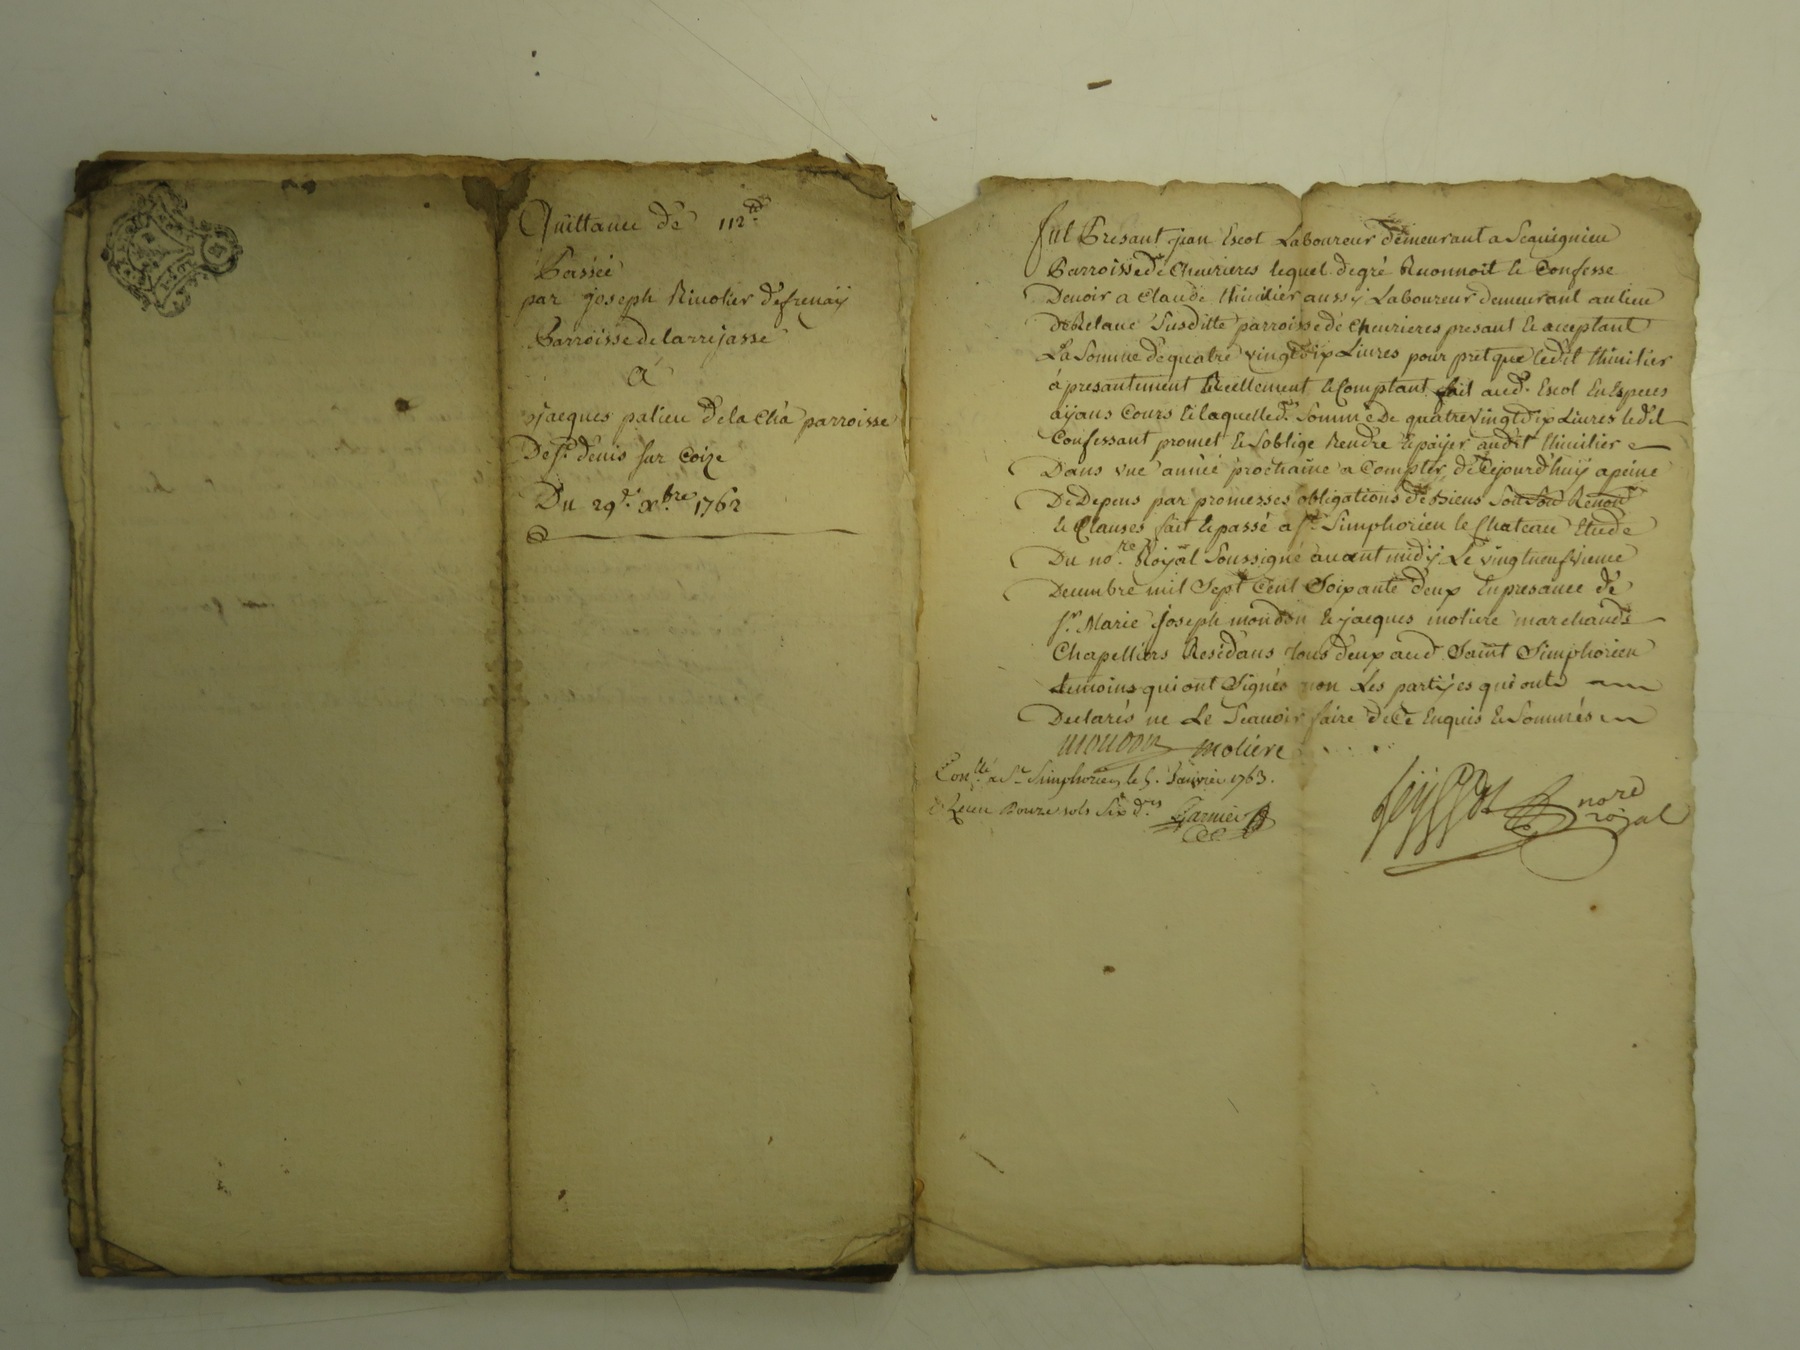 Quittance de 112ᵗᵗ
Passée
par joseph Rivolier de frenaÿ
Parroisse de larrejasse
A
jacques palieu de la Cha parroisse
De sᵗ denis sur Coize
Du 29ᵉ xbre 1762
fut Present jean Escot Laboureur demeurant a
Parroisse de Chevrieres lequel de gré Reconnoit et Confesse
Devoir a Claude thinilier aussÿ Laboureur demeurant au lieu
de susditte parroisse de chevrieres presant et acceptant
La Somme de quatre vingt dix Livres pour pret que ledit thinilier
à presantement Reellement et Comptant fait aud. Escot En Especes
aÿans Cours et laquelle dᵉ. Somme De quatre vingt dix Livres ledit
Confessant promet et s'oblige Rendre et paÿer audit thinilier
Dans une année prochaine a Compter de Cejourd'huÿ a peine
De Depens par promesses obligations de Biens Renonᵒⁿ
et Clauses fait et passé à Sᵗ. Simphorien le Chateau Etude
Du noʳᵉ. Roÿal Soussigné avant midÿ Le vingt neufvieme
Decembre mil Sept Cent Soixante deux En presance de
Sʳ. Marie joseph mondon et jacques moliere marchands
Chapelliers Residans tous deux aud. Saint Simphorien
temoins qui ont Signés non Les partÿes qui ont
Declarés ne Le Scavoir faire de Ce Enquis et Sommés
mondon moliere
Conˡˡᵉ a Sᵗ Simphorien le 5. Janvier 1763.
Reçu Douze sols Six dʳˢ Garnier
nore
roÿal